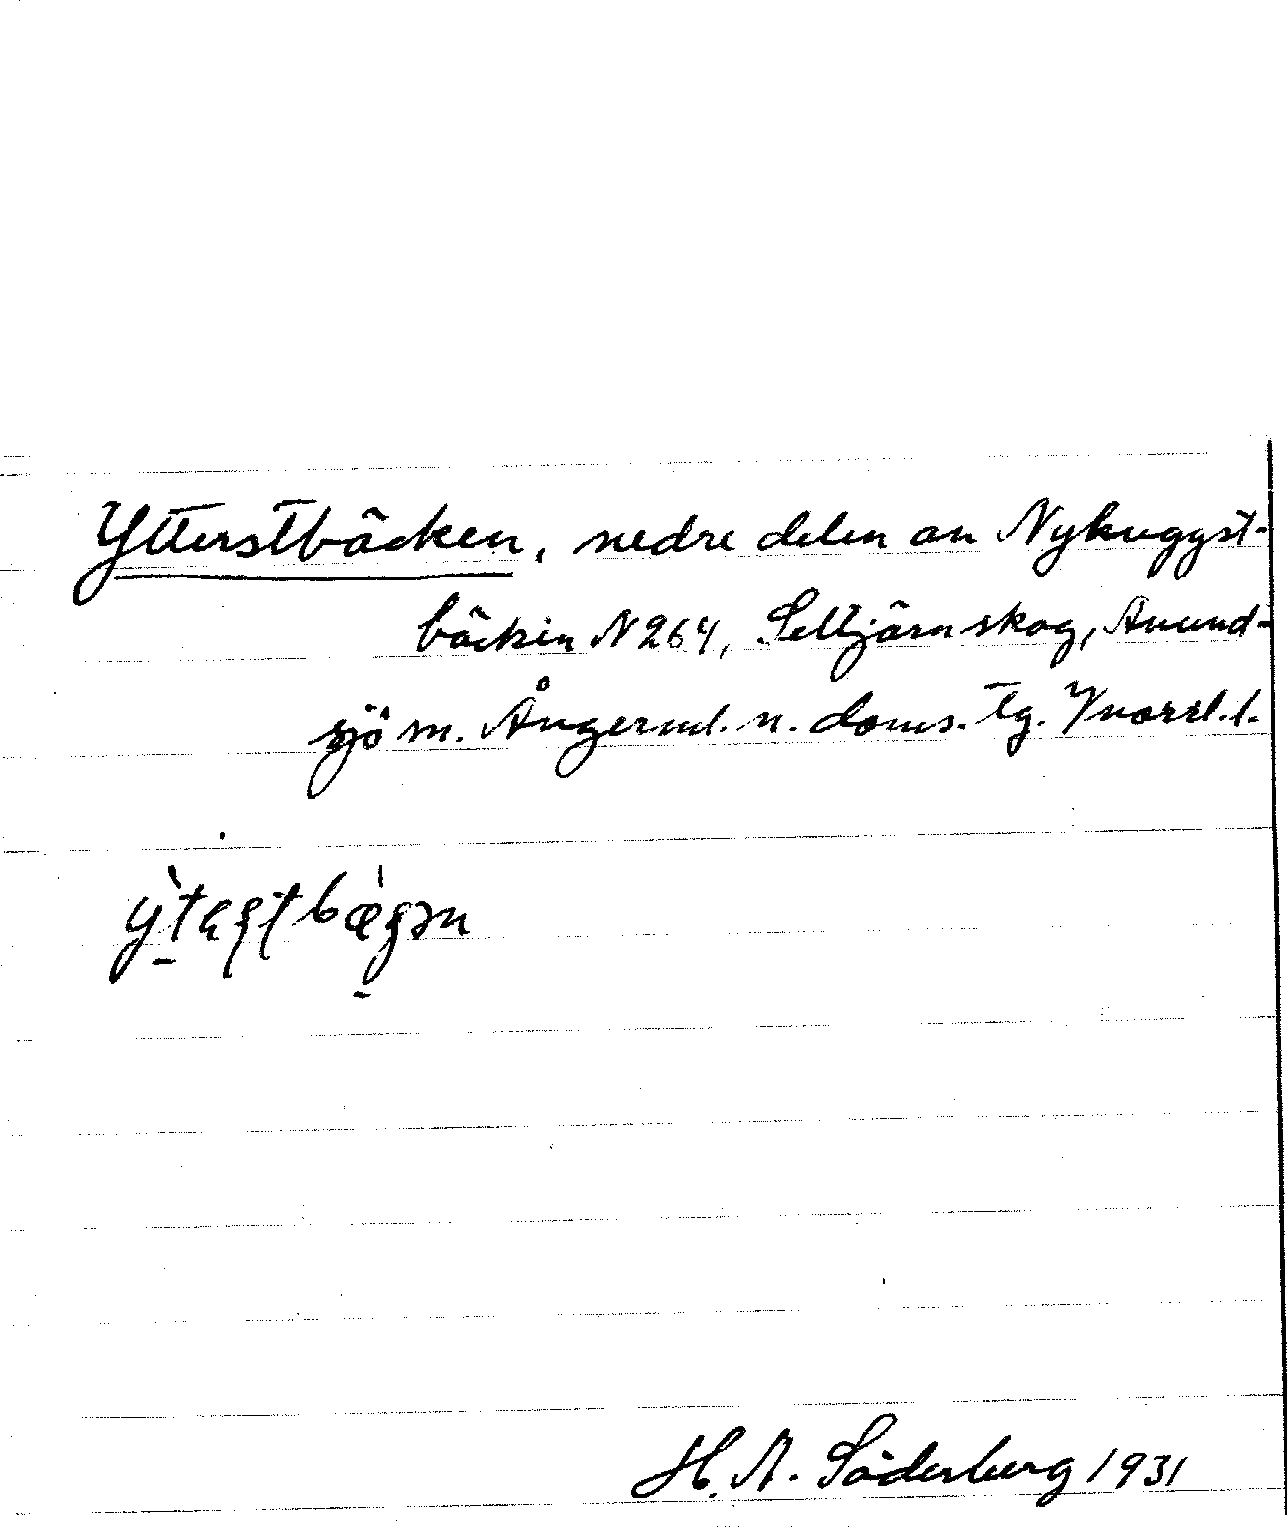 Ytterstbäcken, nedre delen av Nybuggst-
bäcken N 264, Seltjärn skog, Anund-
sjö sn. Ångerml. n. doms. tg. Vnorrl. l.
H. A. Söderberg 1931